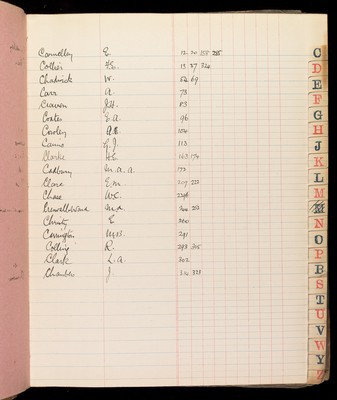 Connelley E. 12 20 158 285
Collier H.E. 13 37 324
Chadwick W. 54 69
Carr A. 73
Craven J.H. 83
Coates E.A. 96
Cowley A.E. 104
Came G.J. 113
Clarke H.E. 163 170
Cadbury M.A.A. 177
Clare E.M. 207 222
Chase W.S. 226
M.A.
Christy E 260
Carrington Miss. 291
Colling R. 293 305
Clark L.A. 302
Chambers J. 310 323
C
D
E
F
G
H
J
K
L
M
N
O
P
R
S
T
U
V
W
Y
Z